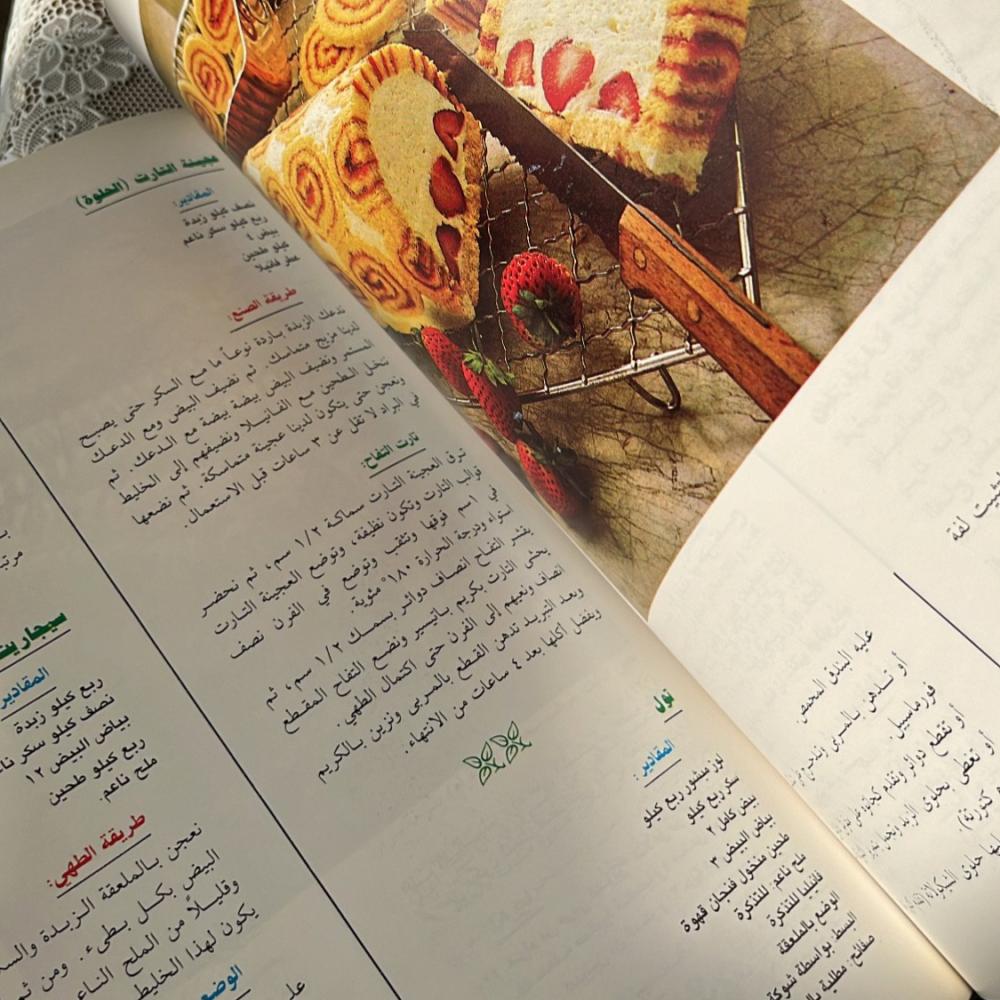 عجينة التارت (الحلوة)
المقادير:
نصف كيلو زبدة
ربع كيلو سكر ناعم
بيض ٤
كيلو طحين
عطر فانيلا
طريقة الصنع:
تدعك الزبدة باردة نوعاً ما مع السكر حتى يصبح
لدينا مزيج متماسك. ثم نضيف البيض ومع الدعك
المستمر ونضيف البيض بيضة بيضة مع الدعك. ثم
ننخل الطحين مع الفانيلا ونضيفهم إلى الخليط
ونعجن حتى يتكون لدينا عجينة متماسكة. ثم نضعها
في البراد لا تقل عن ٣ ساعات قبل الاستعمال.
تارت التفاح:
ترق العجينة التارت سماكة ١/٢ سم، ثم نحضر
قوالب التارت وتكون نظيفة، وتوضع العجينة التارت
في اسم فوقها وتثقب وتوضع في الفرن نصف
استواء ودرجة الحرارة ١٨٠° مئوية
يقشر التفاح انصاف دوائر بسمك ١/٢ سم، ثم
يحشى التارت بكريم باتيسير ونضع التفاح المقطع
انصاف ونعيدهم إلى الفرن حتى اكتمال الطهي.
وبعد التبريد تدهن القطع بالمربى وتزين بالكريم
ويفضل أكلها بعد ٤ ساعات من الانتهاء.
تول
المقادير:
لوز مبشور ربع كيلو
سكر ربع كيلو
بيض كامل ٢
بياض البيض ٣
طحين منخول فنجان قهوة
ملح ناعم: للتذكرة
فانيليا للتذكرة
الوضع بالملعقة
البسط: بواسطة شوكة
صفائح: مطلية
سيجاريت
المقادير
ربع كيلو زبدة
نصف كيلو سكر
بياض البيض ١٢
ربع كيلو طحين
ملح ناعم.
طريقة الطهي:
نعجن بالملعقة الزبدة
البيض بكل بطيء. ومن
وقليلاً من الملح
يكون لهذا الخليط
الوضع
لفة
عليه البندق المحمص
أو تدهن بالمربى
فورماسيل.
أو تقطع دوائر وتقدم
أو تغطى بحلوى